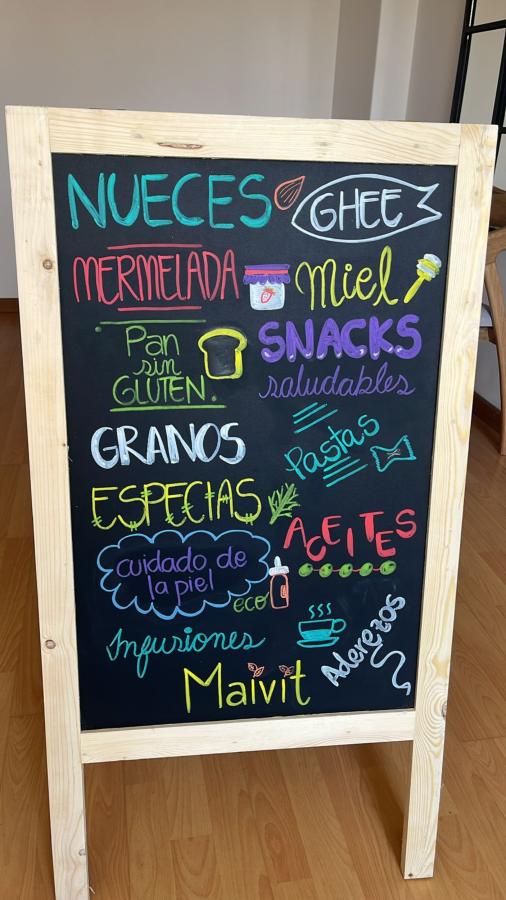 NUECES
GHEE
MERMELADA
Miel
Pan
sin
GLUTEN.
SNACKS
saludables
GRANOS
Pastas
ESPECIAS
ACEITES
cuidado de
la piel
eco
Infusiones
Aderezos
Maivit